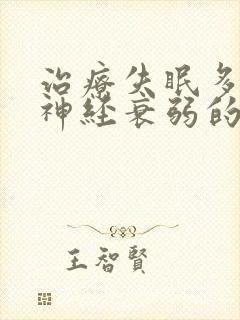 治療失眠多
神经衰弱的
王智賢